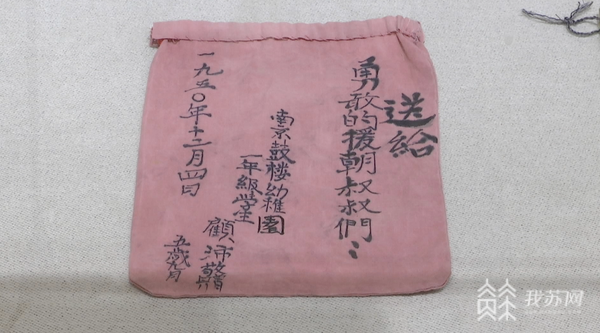 送給
勇敢的援朝叔叔們：
南京鼓楼幼稚園
一年級学生
顧沛
五歲九月
一九五〇年十二月四日
我苏网